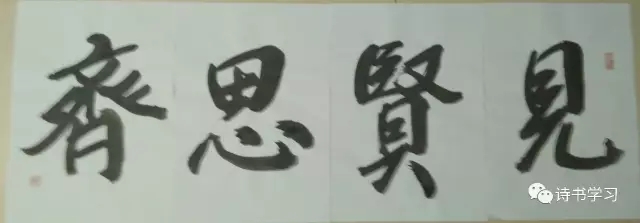 見賢思齊
诗书学习